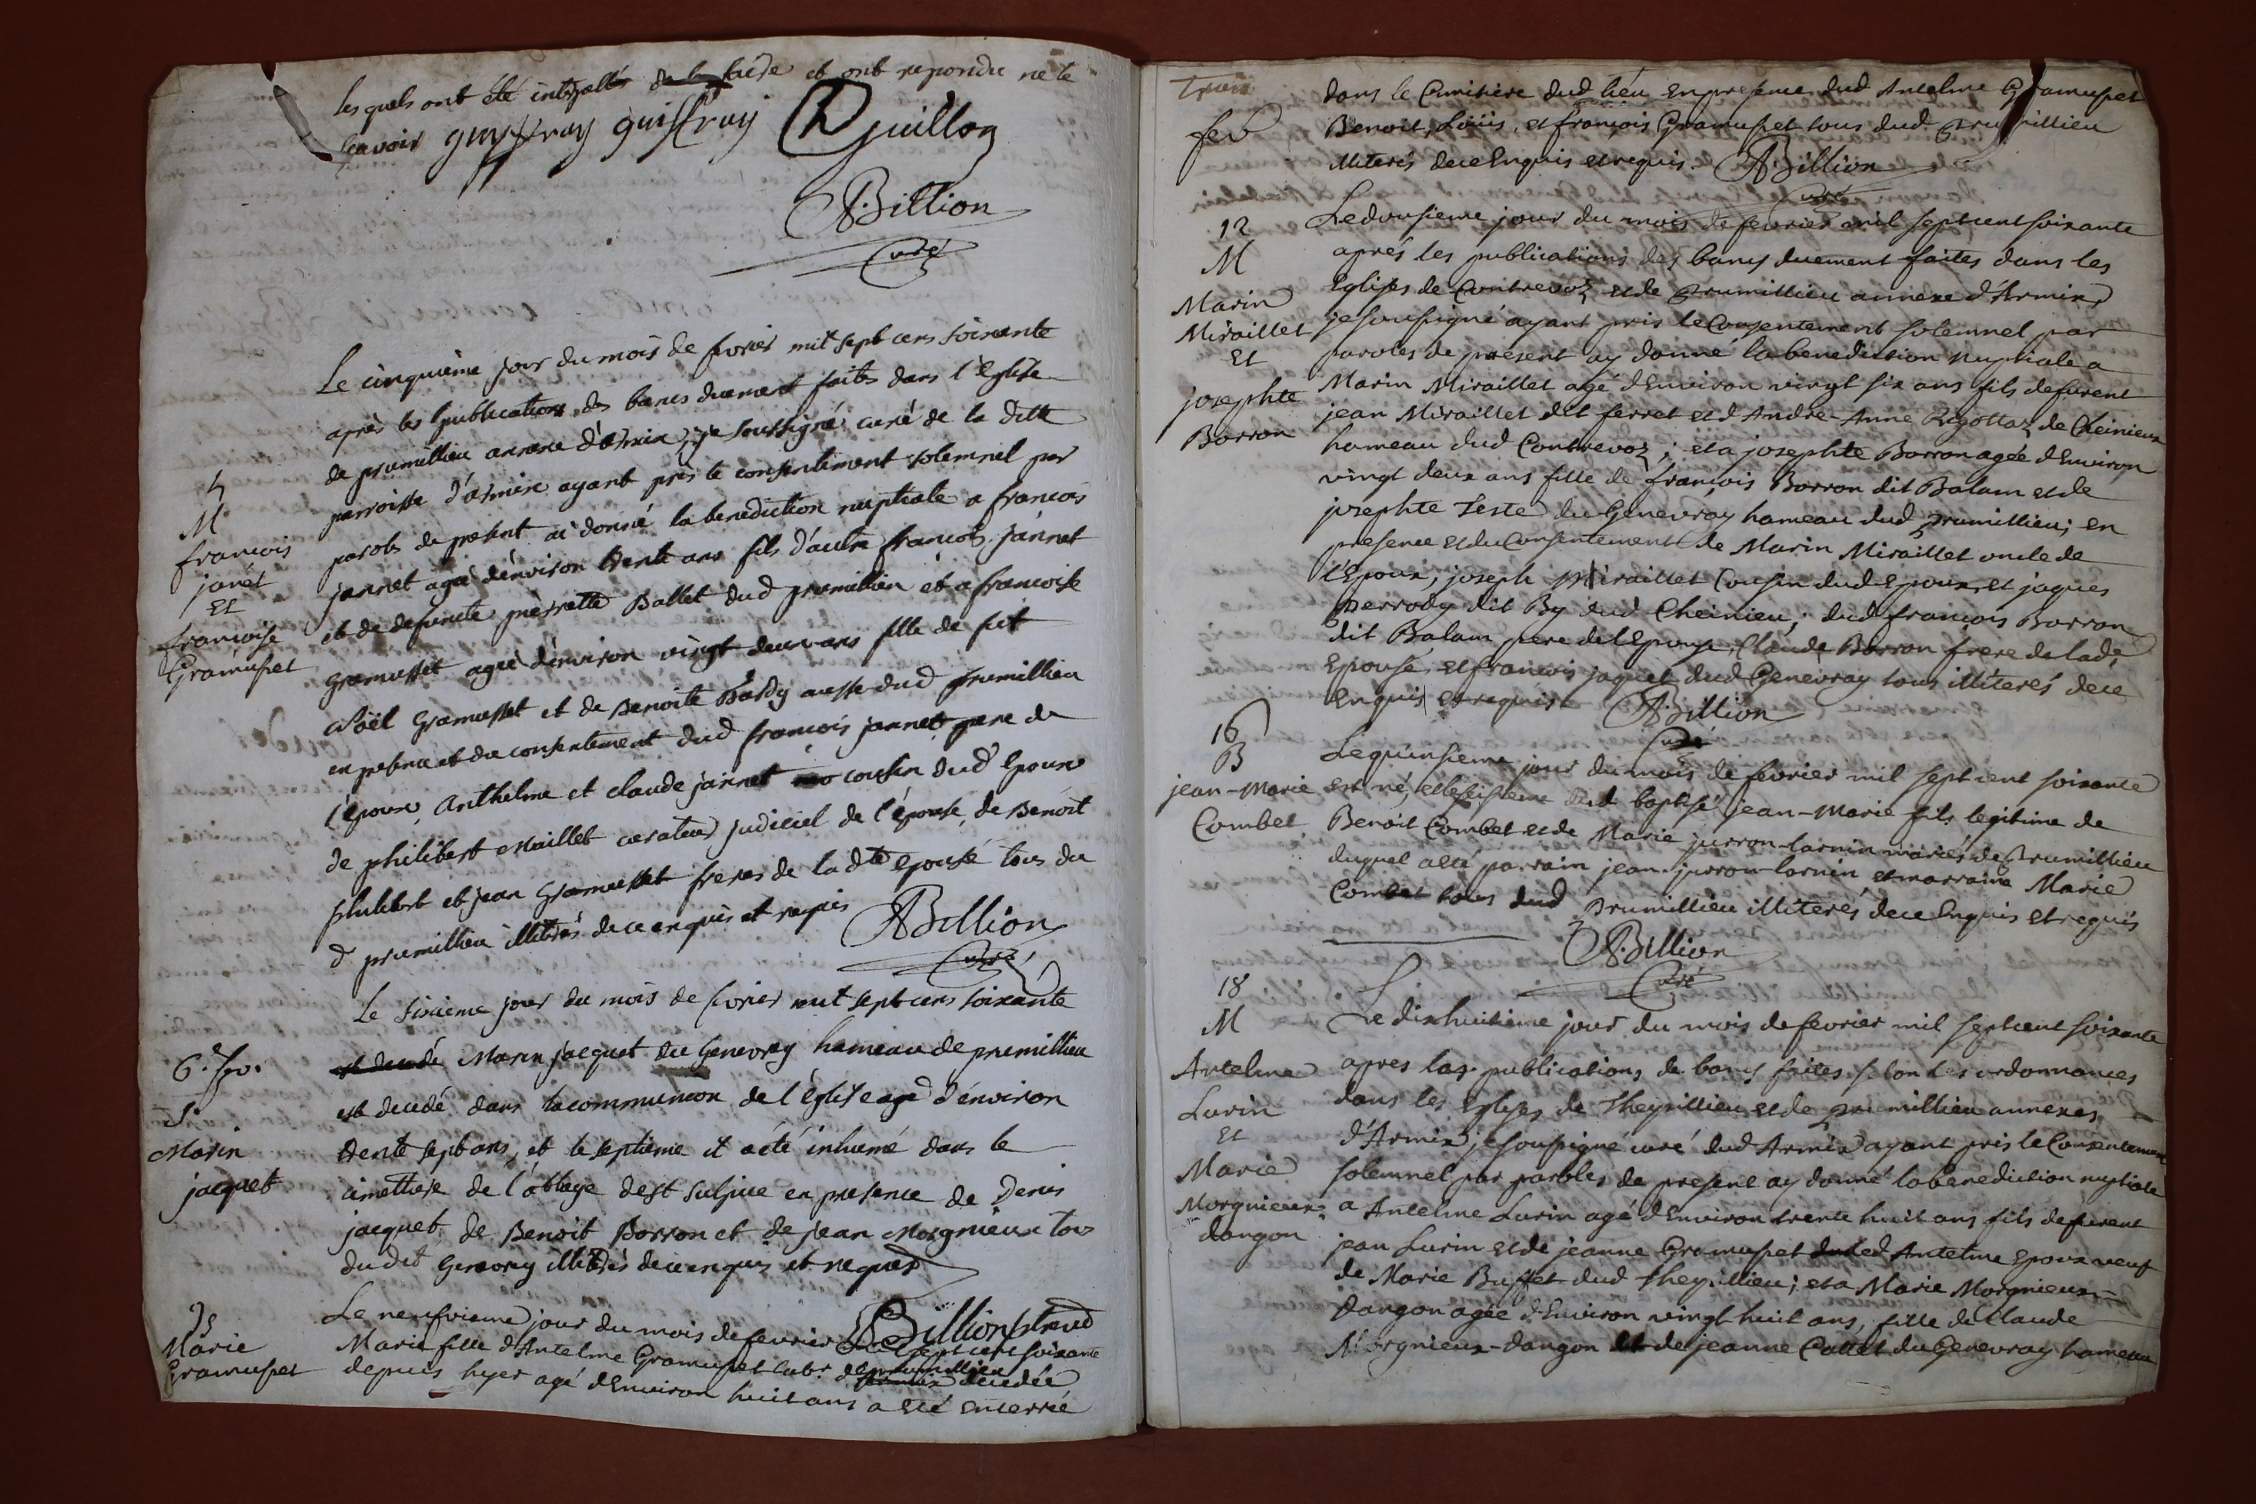 les quels ont été intepallés de le faire et ont repondu ne le
scavoir guiffray guiffray Guillon
ABillion
Curé
4
M
francois
janét
et
francoise
Gramuset
Le cinquième jour du mois de fevrier mil sept cens soixante
après les publications des bancs duement faites dans l'Eglise
de prumillieu annexe d'armix, je soussigné curé de la ditte
parroisse d'armix ayant pris le consentement solemnel par
parole de present ai donné la benediction nuptiale a francois
jannet agé d'environ trente ans fils d'autre francois jannet
et de defuncte pierrette Ballet dud prumillieu et a francoise
Gramusset agée d'environ vingt deux ans fille de fut
Noël Gramusset et de Benoite Bardy aussi dud prumillieu
en presence et du consentement dud francois jannet pere de
l'époux, Anthelme et claude jannet cousin dud Epoux
de philibert Maillet curateur judiciel de l'épouse, de Benoit
philibert et jean Gramusset freres de la dte Epouse tous du
d prumillieu illiterés de ce enquis et requis
ABillion
Curé
6. fev.
S.
Marin
jacquet
Le sixième jour du mois de fevrier mil sept cens soixante
est decedé Marin jacquet du Genevray hameau de premillieu
est decedé dans la communion de l'Eglise agé d'environ
trente sept ans, et le septième il a été inhumé dans le
cimettiere de l'abbaye de st sulpice en presence de Denis
jacquet, de Benoit Borron et de jean Morgnieux tous
dudit Genevray illiterés de ce enquis et requis
ABillion
9
Marie
Gramuset
Le neufvieme jour du mois de fevrier sept cent soixante
Marie fille d'Antelme Gramuset labr. de prumillieu decedée
depuis hyer agé d'Environ huit ans a eté enterrée
Trois
fev
dans le Cimitiere dud lieu en presence dud Antelme Gramuset
Benoit, Loüis, et françois Gramuset tous dud Prumillieu
illiterés de ce Enquis et requis. ABillion
Curé
12
M
Marin
Miraillet
Et
josephte
Borron
Le dousieme jour du mois de fevrier mil sept cent soixante
aprés les publications des bancs duement faites dans les
Eglises de Contrevoz et de Prumillieu annexe d'Armix
je sousigné ayant pris le Consentement solemnel par
paroles de present ay donné la benediction nuptiale a
Marin Miraillet agé d'Environ vingt six ans fils defunt
jean Miraillet dit ferret et d'Andre-Anne Rigottaz de Cheinieux
hameau dud Contrevoz; et a josephte Borron agée d'Environ
vingt deux ans fille de françois Borron dit Balam et de
josephte Teste du Genevray hameau dud Prumillieu; en
presence et du Consentement de Marin Miraillet oncle de
l'Epoux; joseph Miraillet Cousin dud Epoux, et jaques
Perrody dit By dud Cheinieu; dud françois Borron
dit Balam pere de l'Epouse, Claude Borron frere de lade
Epouse, et francois jaquet dud Genevray tous illiterés de ce
enquis et requis ABillion
Curé
16
B
jean-Marie
Combet
Le quinsieme jour du mois de fevrier mil sept cent soixante
est né, et le sisieme dud baptisé jean-Marie fils legitime de
Benoit Combet et de Marie jurron-larnin mariés de Prumillieu
duquel a eté parrain jean jurron-larnin et marraine Marie
Combet tous dud Prumillieu illiterés de ce Enquis et requis
ABillion
Curé
18
M
Antelme
Lurin
Et
Marie
Morgnieux-
dangon
Le dixhuitieme jour du mois de fevrier mil sept cent soixante
apres les publications de bancs faites selon les ordonnances
dans les Eglises de Theysillieu et de Prumillieu annexes
d'Armix; je sousigné curé dud Armix ayant pris le Consentement
solemnel par paroles de present ay donné la benediction nuptiale
a Antelme Lurin agé d'Environ trente huit ans fils defunt
jean Lurin et de jeanne Gramuset dud Antelme Epoux veuf
de Marie Buffet dud Theysillieu; et a Marie Morgnieux-
dangon agée d'Environ vingt huit ans, fille de Claude
Morgnieux-dangon et de jeanne Callet du Genevray hameau